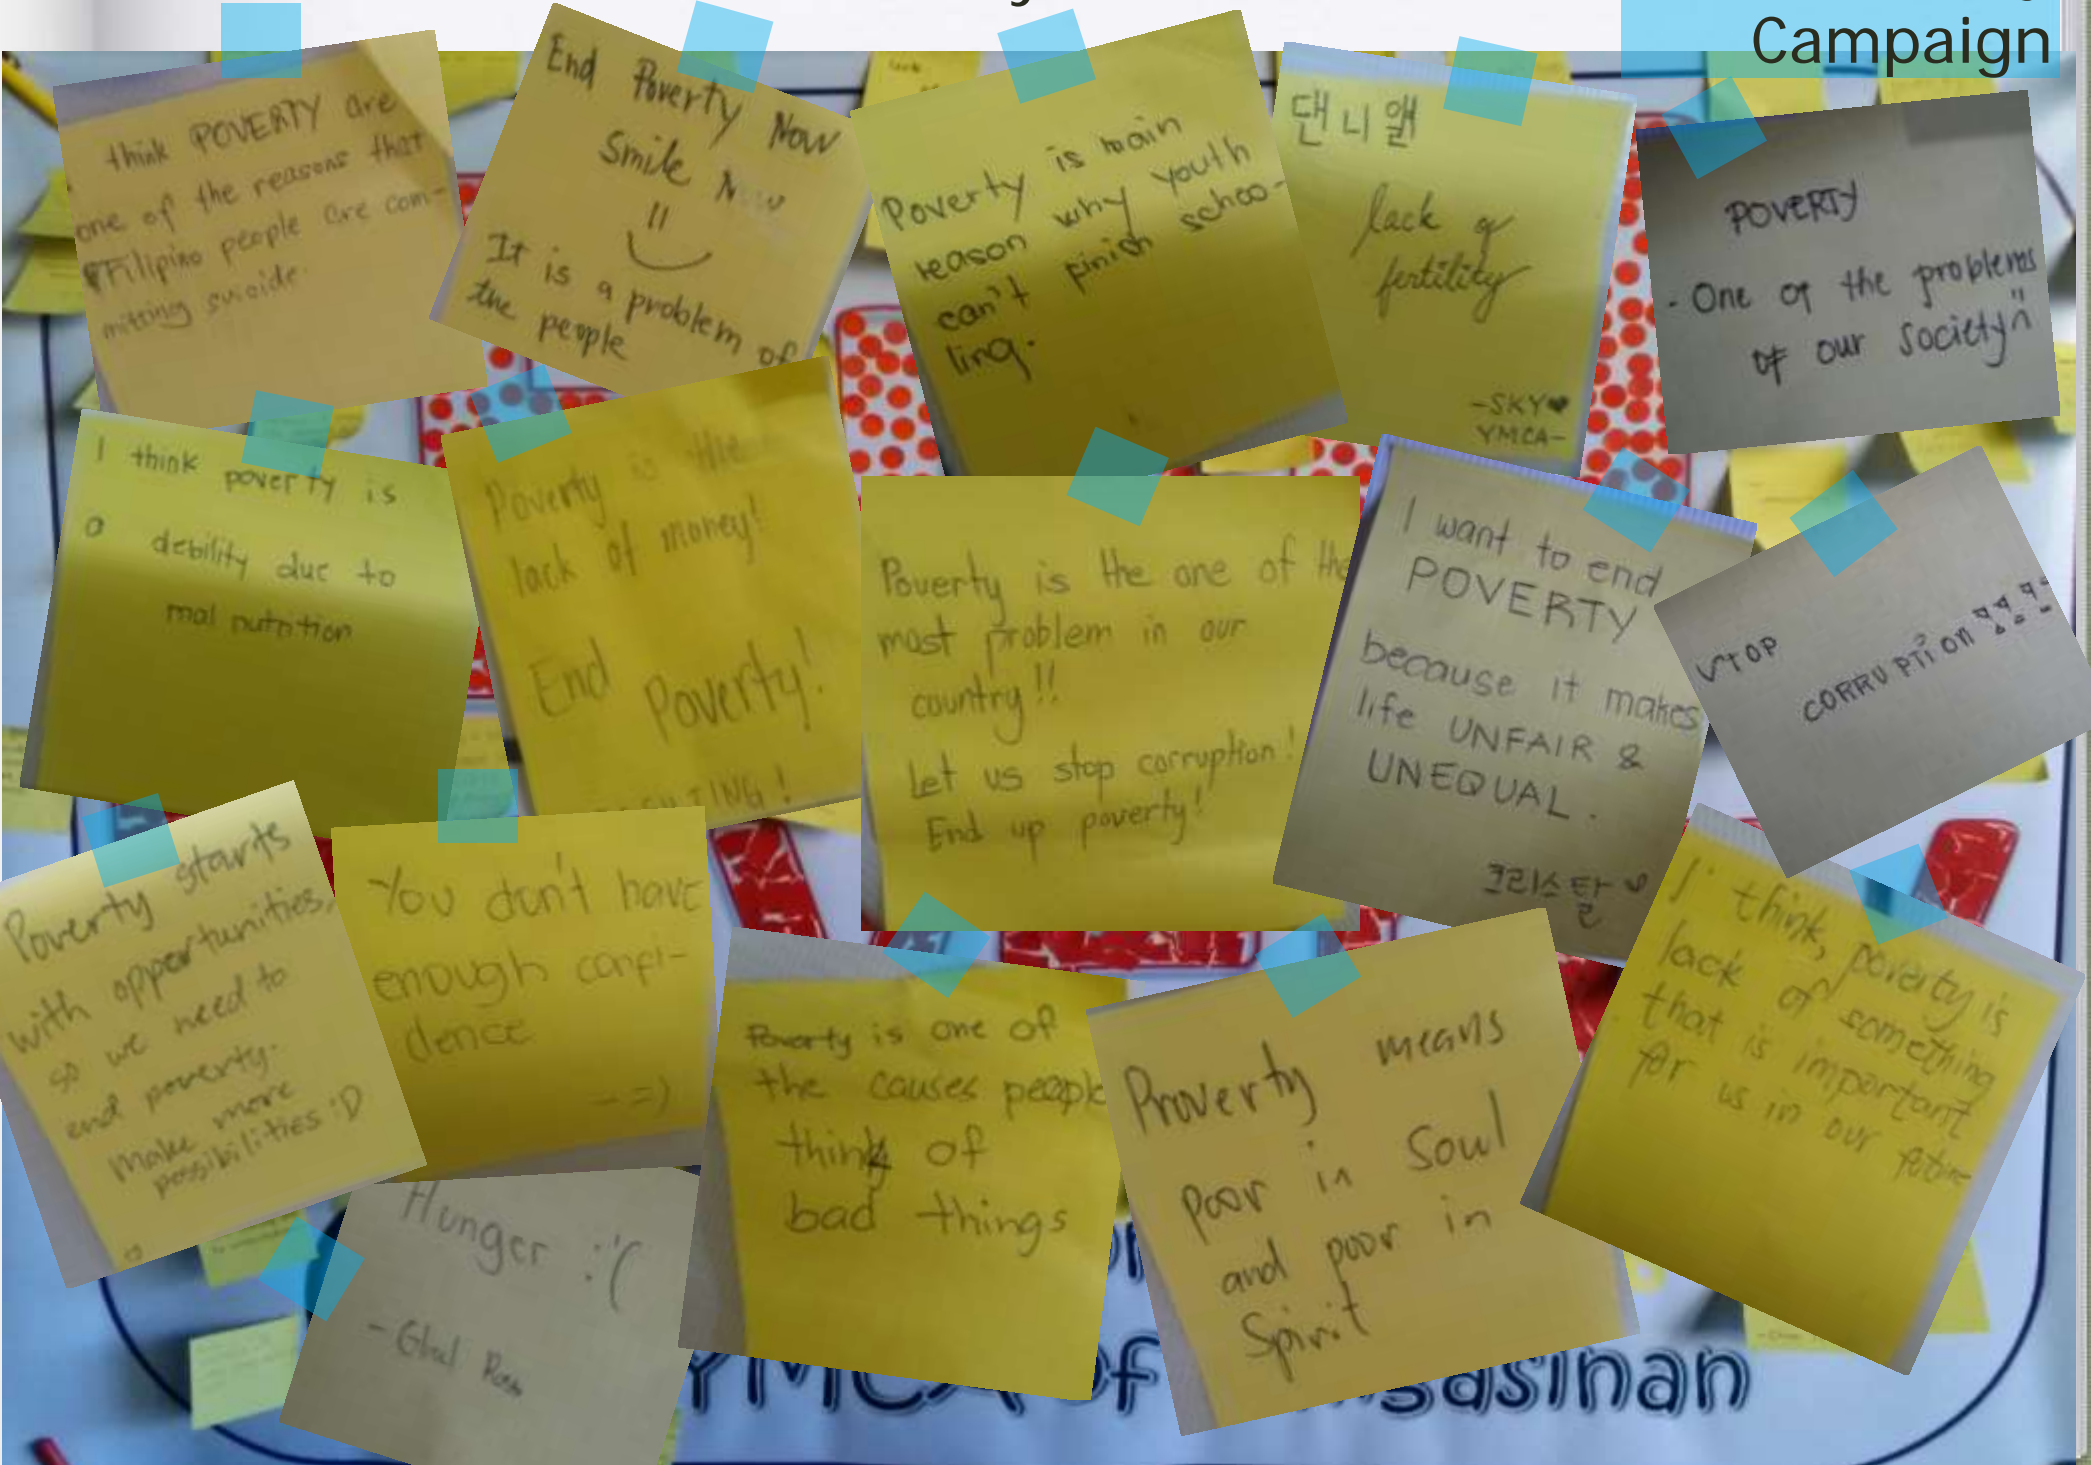 Campaign
think POVERTY are
one of the reasons that
Filipino people are com-
mitting suicide.
End Poverty Now
Smile Now
It is a problem of
the people
Poverty is main
reason why youth
can't finish schoo-
ling.
댄니앨
lack of
fertility
-SKY♥
YMCA-
POVERTY
- One of the problems
of our society"
I think poverty is
a debility due to
mal nutrition
Poverty is the
lack of money!
End Poverty!
Poverty is the one of the
most problem in our
country!!
Let us stop corruption!
End up poverty!
I want to end
POVERTY
because it makes
life UNFAIR &
UNEQUAL.
크리스탈
STOP
CORRUPTION
Poverty starts
with opportunities,
so we need to
end poverty.
Make more
possibilities :D
You don't have
enough confi-
dence
- =)
Poverty is one of
the causes people
think of
bad things
Proverty means
poor in Soul
and poor in
Spirit
I think, poverty is
lack of something
that is important
for us in our future
Hunger :'(
YMCA of